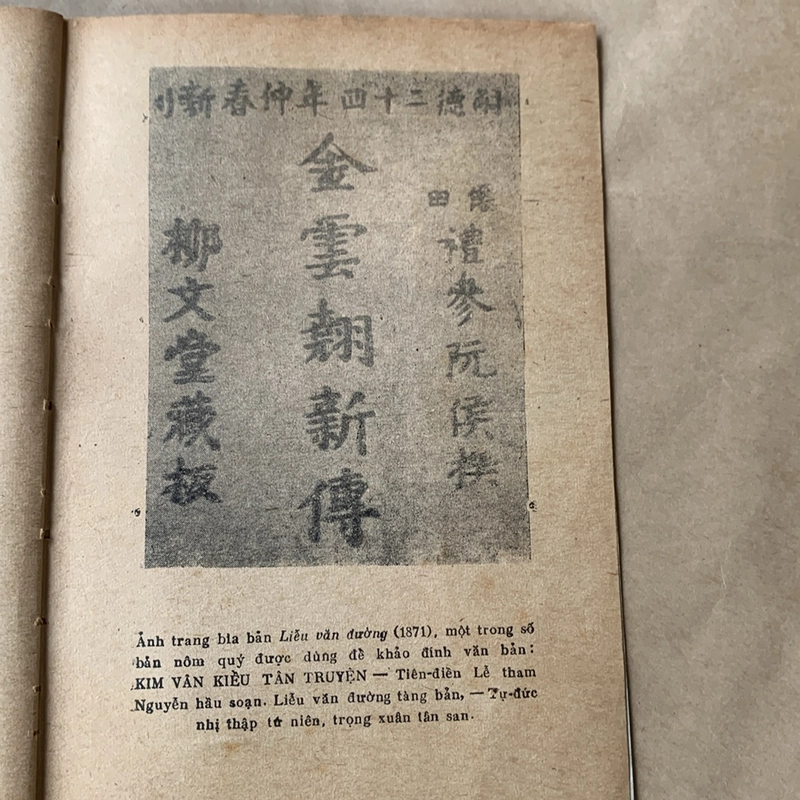 嗣德二十四年仲春新刊
僊田
禮參阮侯撰
金雲翹新傳
柳文堂藏板
Ảnh trang bìa bản Liễu văn đường (1871), một trong số
bản nôm quý được dùng để khảo đính văn bản:
KIM VÂN KIỀU TÂN TRUYỆN — Tiên-điền Lễ tham
Nguyễn hầu soạn. Liễu văn đường tàng bản, — Tự-đức
nhị thập tứ niên, trọng xuân tân san.